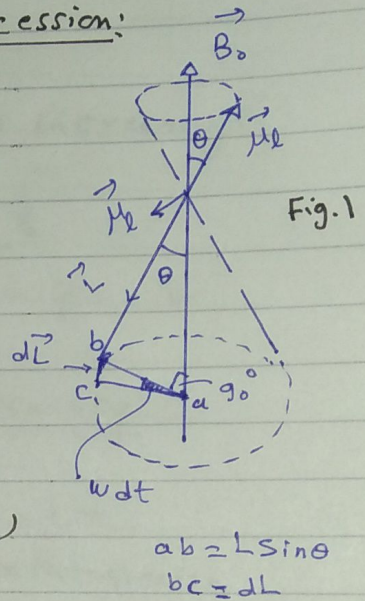 cession:
B₀
θ
μₗ
μₗ
Fig.1
θ
L
dL
b
c
a
90°
wdt
)
ab = L Sinθ
bc = dL